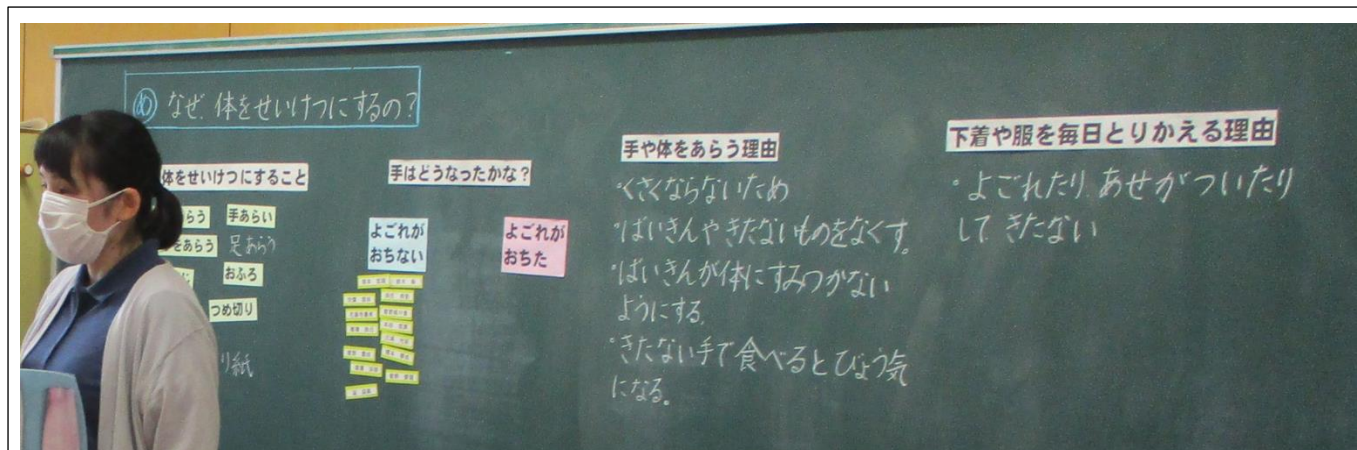 め なぜ 体をせいけつにするの？
体をせいけつにすること
らう 手あらい
をあらう 足あらう
おふろ
つめ切り
り紙
手はどうなったかな？
よごれが
おちない
よごれが
おちた
手や体をあらう理由
・くさくならないため
・ばいきんやきたないものをなくす。
・ばいきんが体にすみつかない
ようにする。
・きたない手で食べるとびょう気
になる。
下着や服を毎日とりかえる理由
・よごれたり、あせがついたり
して きたない